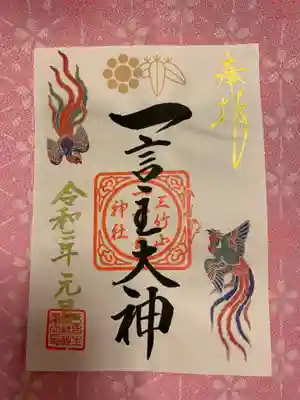 奉拝
一言主大神
三竹山
神社
令和二年元旦